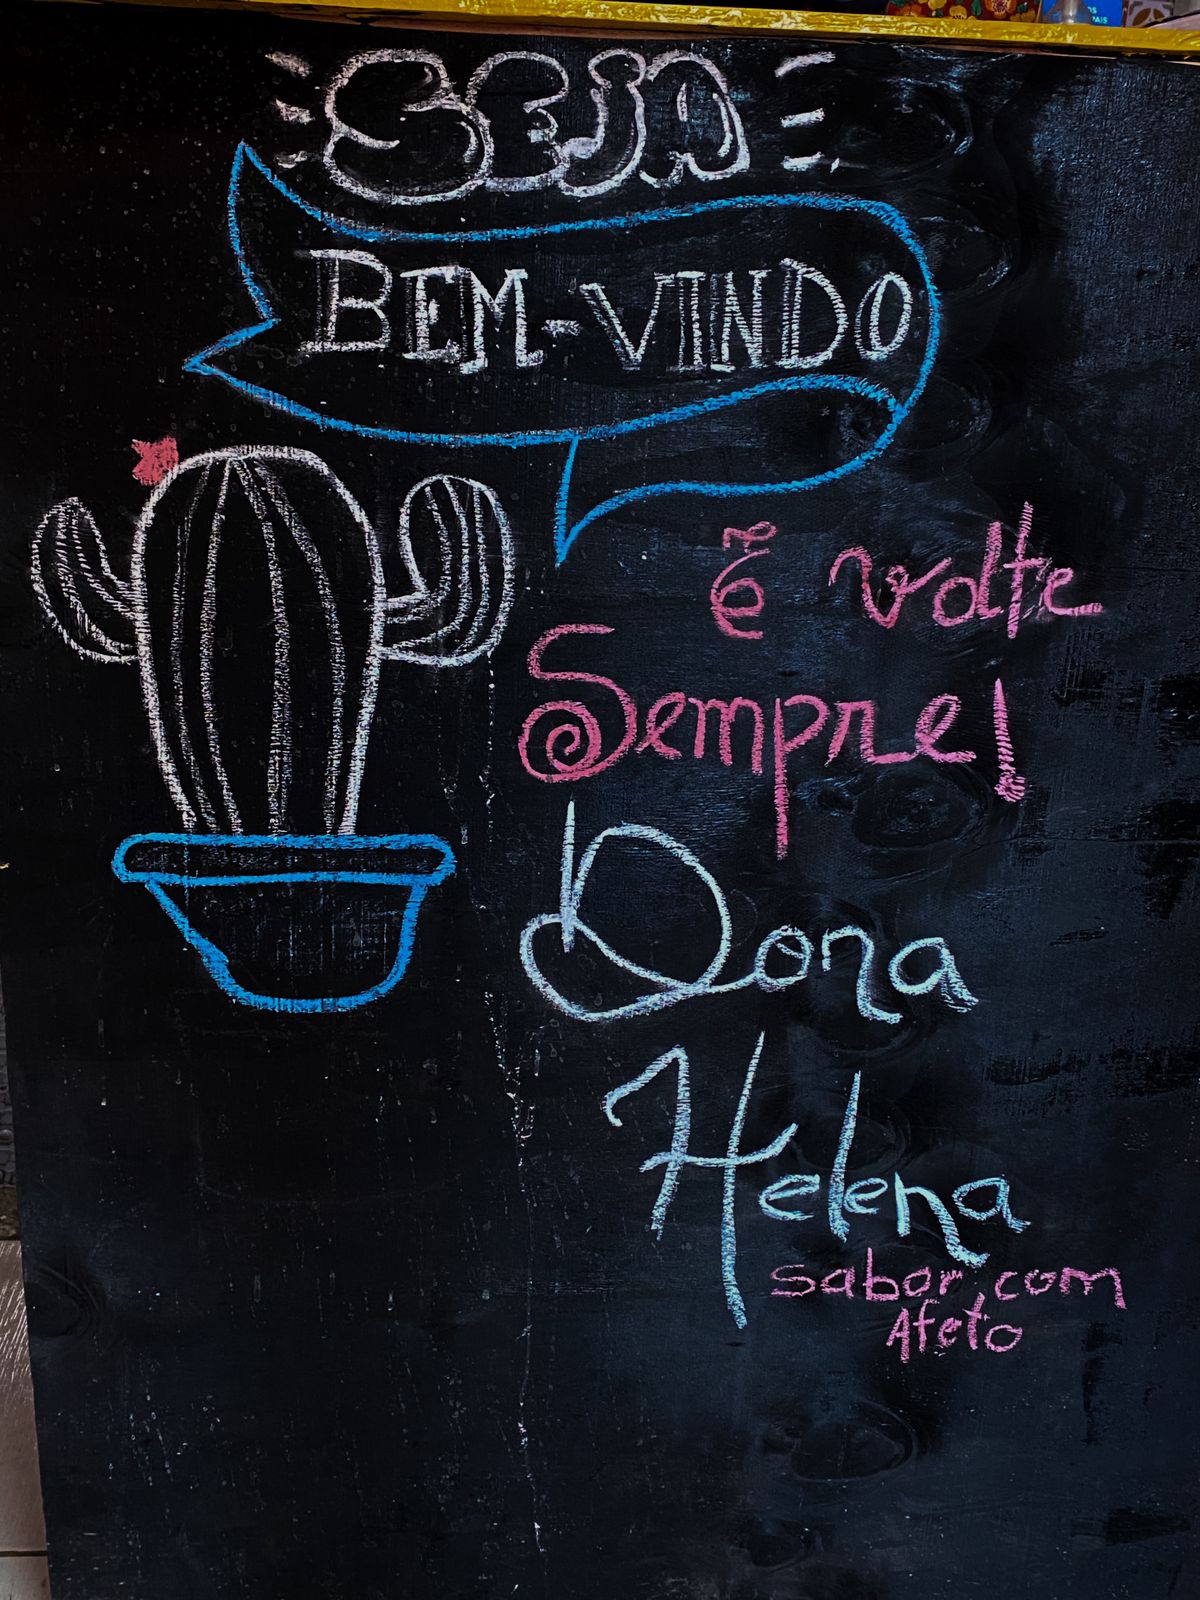 SEJA
BEM-VINDO
E volte
Sempre!
Dona
Helena
sabor com
Afeto